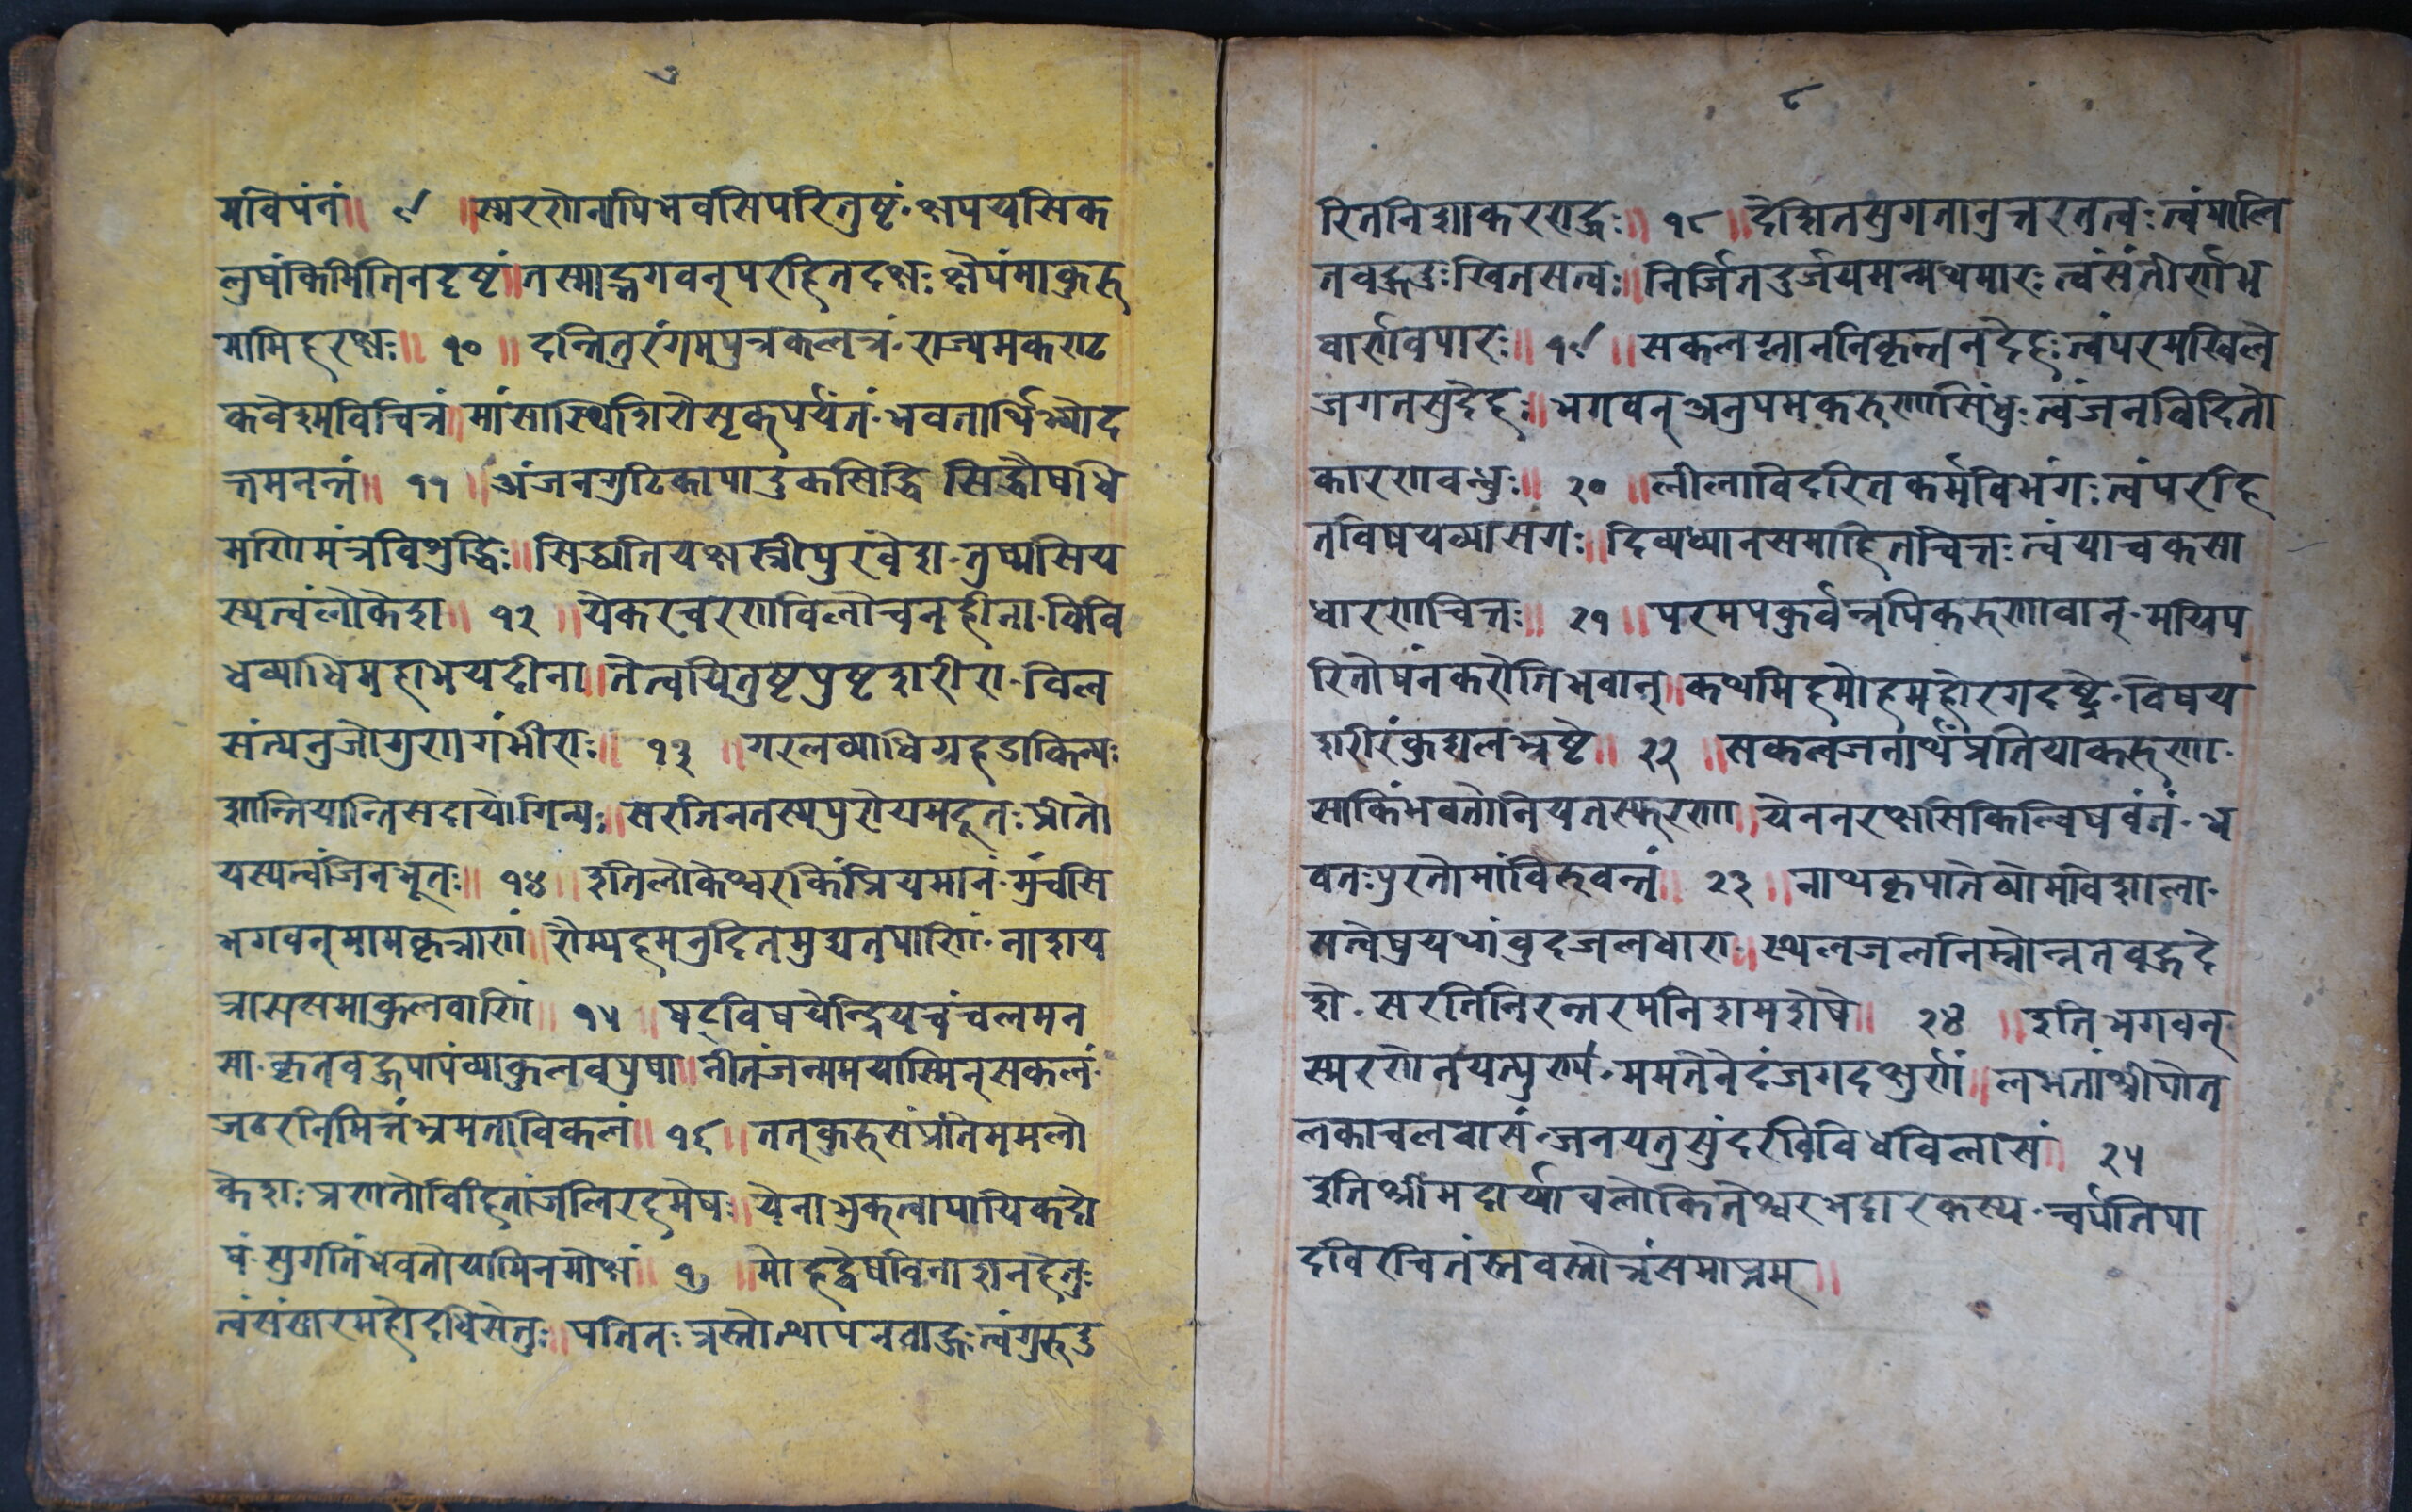 ७
मविपंनं॥ ९ ॥स्मरणेनापिभवसिपरितुष्टं·क्षपयसिक
लुषंकिमितिनदृष्टं॥तस्माद्भगवन्परहितदक्षः·क्षेपंमाकुरु
मामिहरक्षः॥ १० ॥ दन्तितुरंगमपुत्रकलत्रं·राज्यमकराट
कवेश्मविचित्रं॥मांसास्थिशिरोसृक्पर्यंतं·भवतार्थिभ्योद
त्तमनन्तं॥ ११ ॥अंजनगुटिकापादुकसिद्धि सिद्धौषधि
मणिमंत्रविशुद्धिः॥सिद्ध्यतियक्षस्त्रीपुरवेश·तुष्यसिय
स्यत्वंलोकेश॥ १२ ॥येकरचरणविलोचनहीना·विवि
धव्याधिमहाभयदीना॥तेत्वयितुष्टपुष्टशरीरा·विल
संत्यनुजोगुणगंभीराः॥ १३ ॥गरलव्याधिग्रहडाकिन्यः
शान्तियान्तिसदायोगिन्यः॥सरतिनतस्यपुरोयमदूतः·प्रीतो
यस्यत्वंजिनभूतः॥ १४ ॥इतिलोकेश्वरकिंम्रियमानं·मुंचसि
भगवन्मामकृत्राणं॥रौम्यहमनुदितमुद्यतपाणिं·नाशय
त्राससमाकुलवाणिं॥ १५ ॥षट्विषयेन्द्रियचंचलमन
सा·कृतवहुपापंव्याकुलवपुषा॥नीतंजन्ममयास्मिन्सकलं·
जठरनिमित्तंभ्रमताविकलं॥ १६ ॥तत्कुरुसंप्रतिममलो
केशः·प्रणतोविहितांजलिरहमेषः॥येनाभुक्त्वापायिकदो
षं·सुगतिंभवतोयामिनमोक्षं॥ १७ ॥मोहद्वेषविनाशनहेतुः
त्वंसंसारमहोदधिसेतुः॥पतितःत्रस्तोत्थापनवाहुः·त्वंगुरुदु
८
रितनिशाकरराहुः॥ १८ ॥देशितसुगतानुत्तरतत्वः·त्वंपालि
तवहुदुःखितसत्वः॥निर्जितदुर्जयमन्मथमारः·त्वंसंतीर्णभ
वार्णवपारः॥ १९ ॥सकलस्नाननिकृन्तनदेहः·त्वंपरमखिले
जगतसुदेहः॥भगवन्अनुपमकरुणासिंधुः·त्वंजनविदितो
कारणवन्धुः॥ २० ॥लीलाविदरितकर्मविभंगः·त्वंपरहि
तविषयव्यासगः॥दिव्यध्यानसमाहितचित्तः·त्वंयाचकसा
धारणेचित्तः॥ २१ ॥परमपकुर्वन्नपिकरुणावान्·मयिप
रितोषंनकरोतिभवान्॥कथमिहमोहमहोरगदष्टे·विषय
शरीरंकुशलभ्रष्टे॥ २२ ॥सकलजनार्थंप्रतियाकरुणा·
साकिंभवतोनियतस्फुरणा॥येननरक्षसिकिल्विषवंतं·भ
वतःपुरतोमांविरुवन्तं॥ २३ ॥नाथकृपातेव्योमविशाला·
सत्वेषुयथांवुदजलधारा॥स्थलजलनिम्नोन्नतवहुदे
शे·सरतिनिरन्तरमनिशमशेषे॥ २४ ॥इतिभगवन्·
स्मरणेनयत्पुण्यं·ममतेनेदंजगदक्षुणं॥लभतांश्रीपोत
लकाचलवासं·जनयतुसुंदरविविधविलासं॥ २५
इतिश्रीमदार्य्यावलोकितेश्वरभट्टारकस्य·चर्पतिपा
दविरचितंस्तवस्तोत्रंसमाप्तम्॥